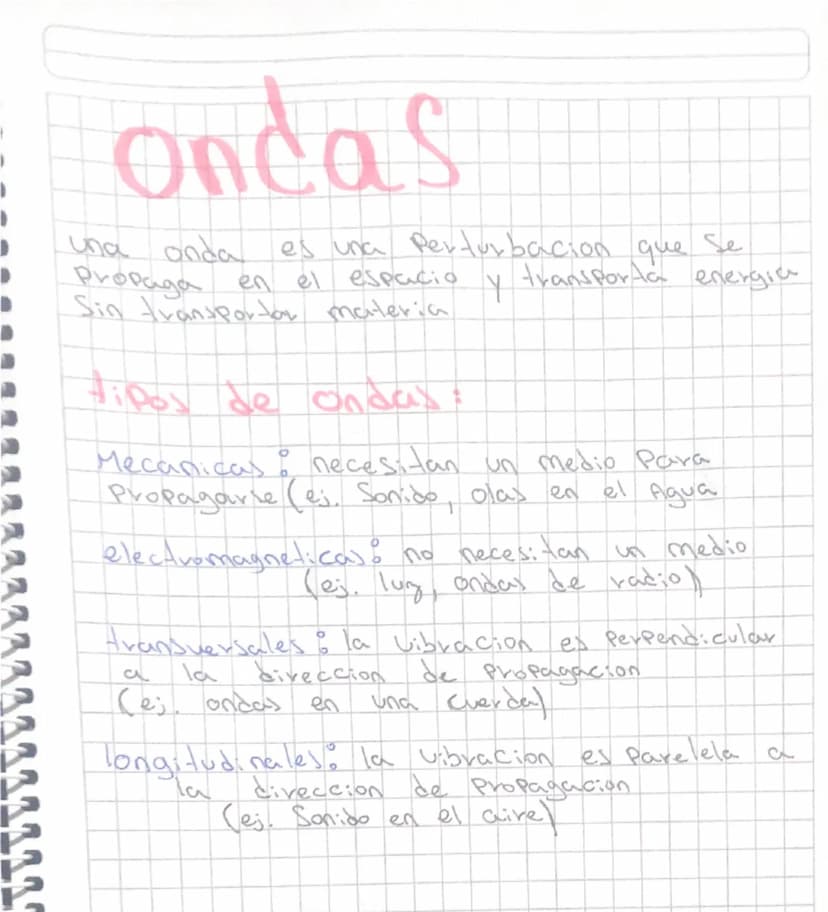 ondas
una onda es una perturbacion que se
propaga en el espacio y transporta energia
sin transportar materia
tipos de ondas:
Mecanicas: necesitan un medio para
propagarse (ej. Sonido, olas en el Agua
electromagneticas: no necesitan un medio
(ej. luz, ondas de radio)
transversales: la vibracion es perpendicular
a la direccion de propagacion
(ej. ondas en una cuerda)
longitudinales: la vibracion es parelela a
la direccion de propagacion
(ej. Sonido en el aire)